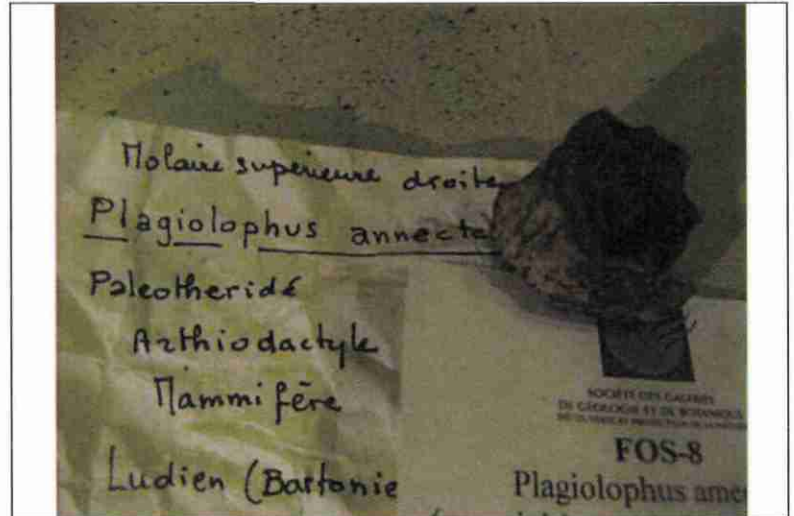 Molaire supérieure droite
Plagiolophus annecte
Paleotheridé
Arthiodactyle
Mammifère
Ludien (Bartonie
SOCIÉTÉ DES GALERIES
DE GÉOLOGIE ET DE BOTANIQUE
FOS-8
Plagiolophus